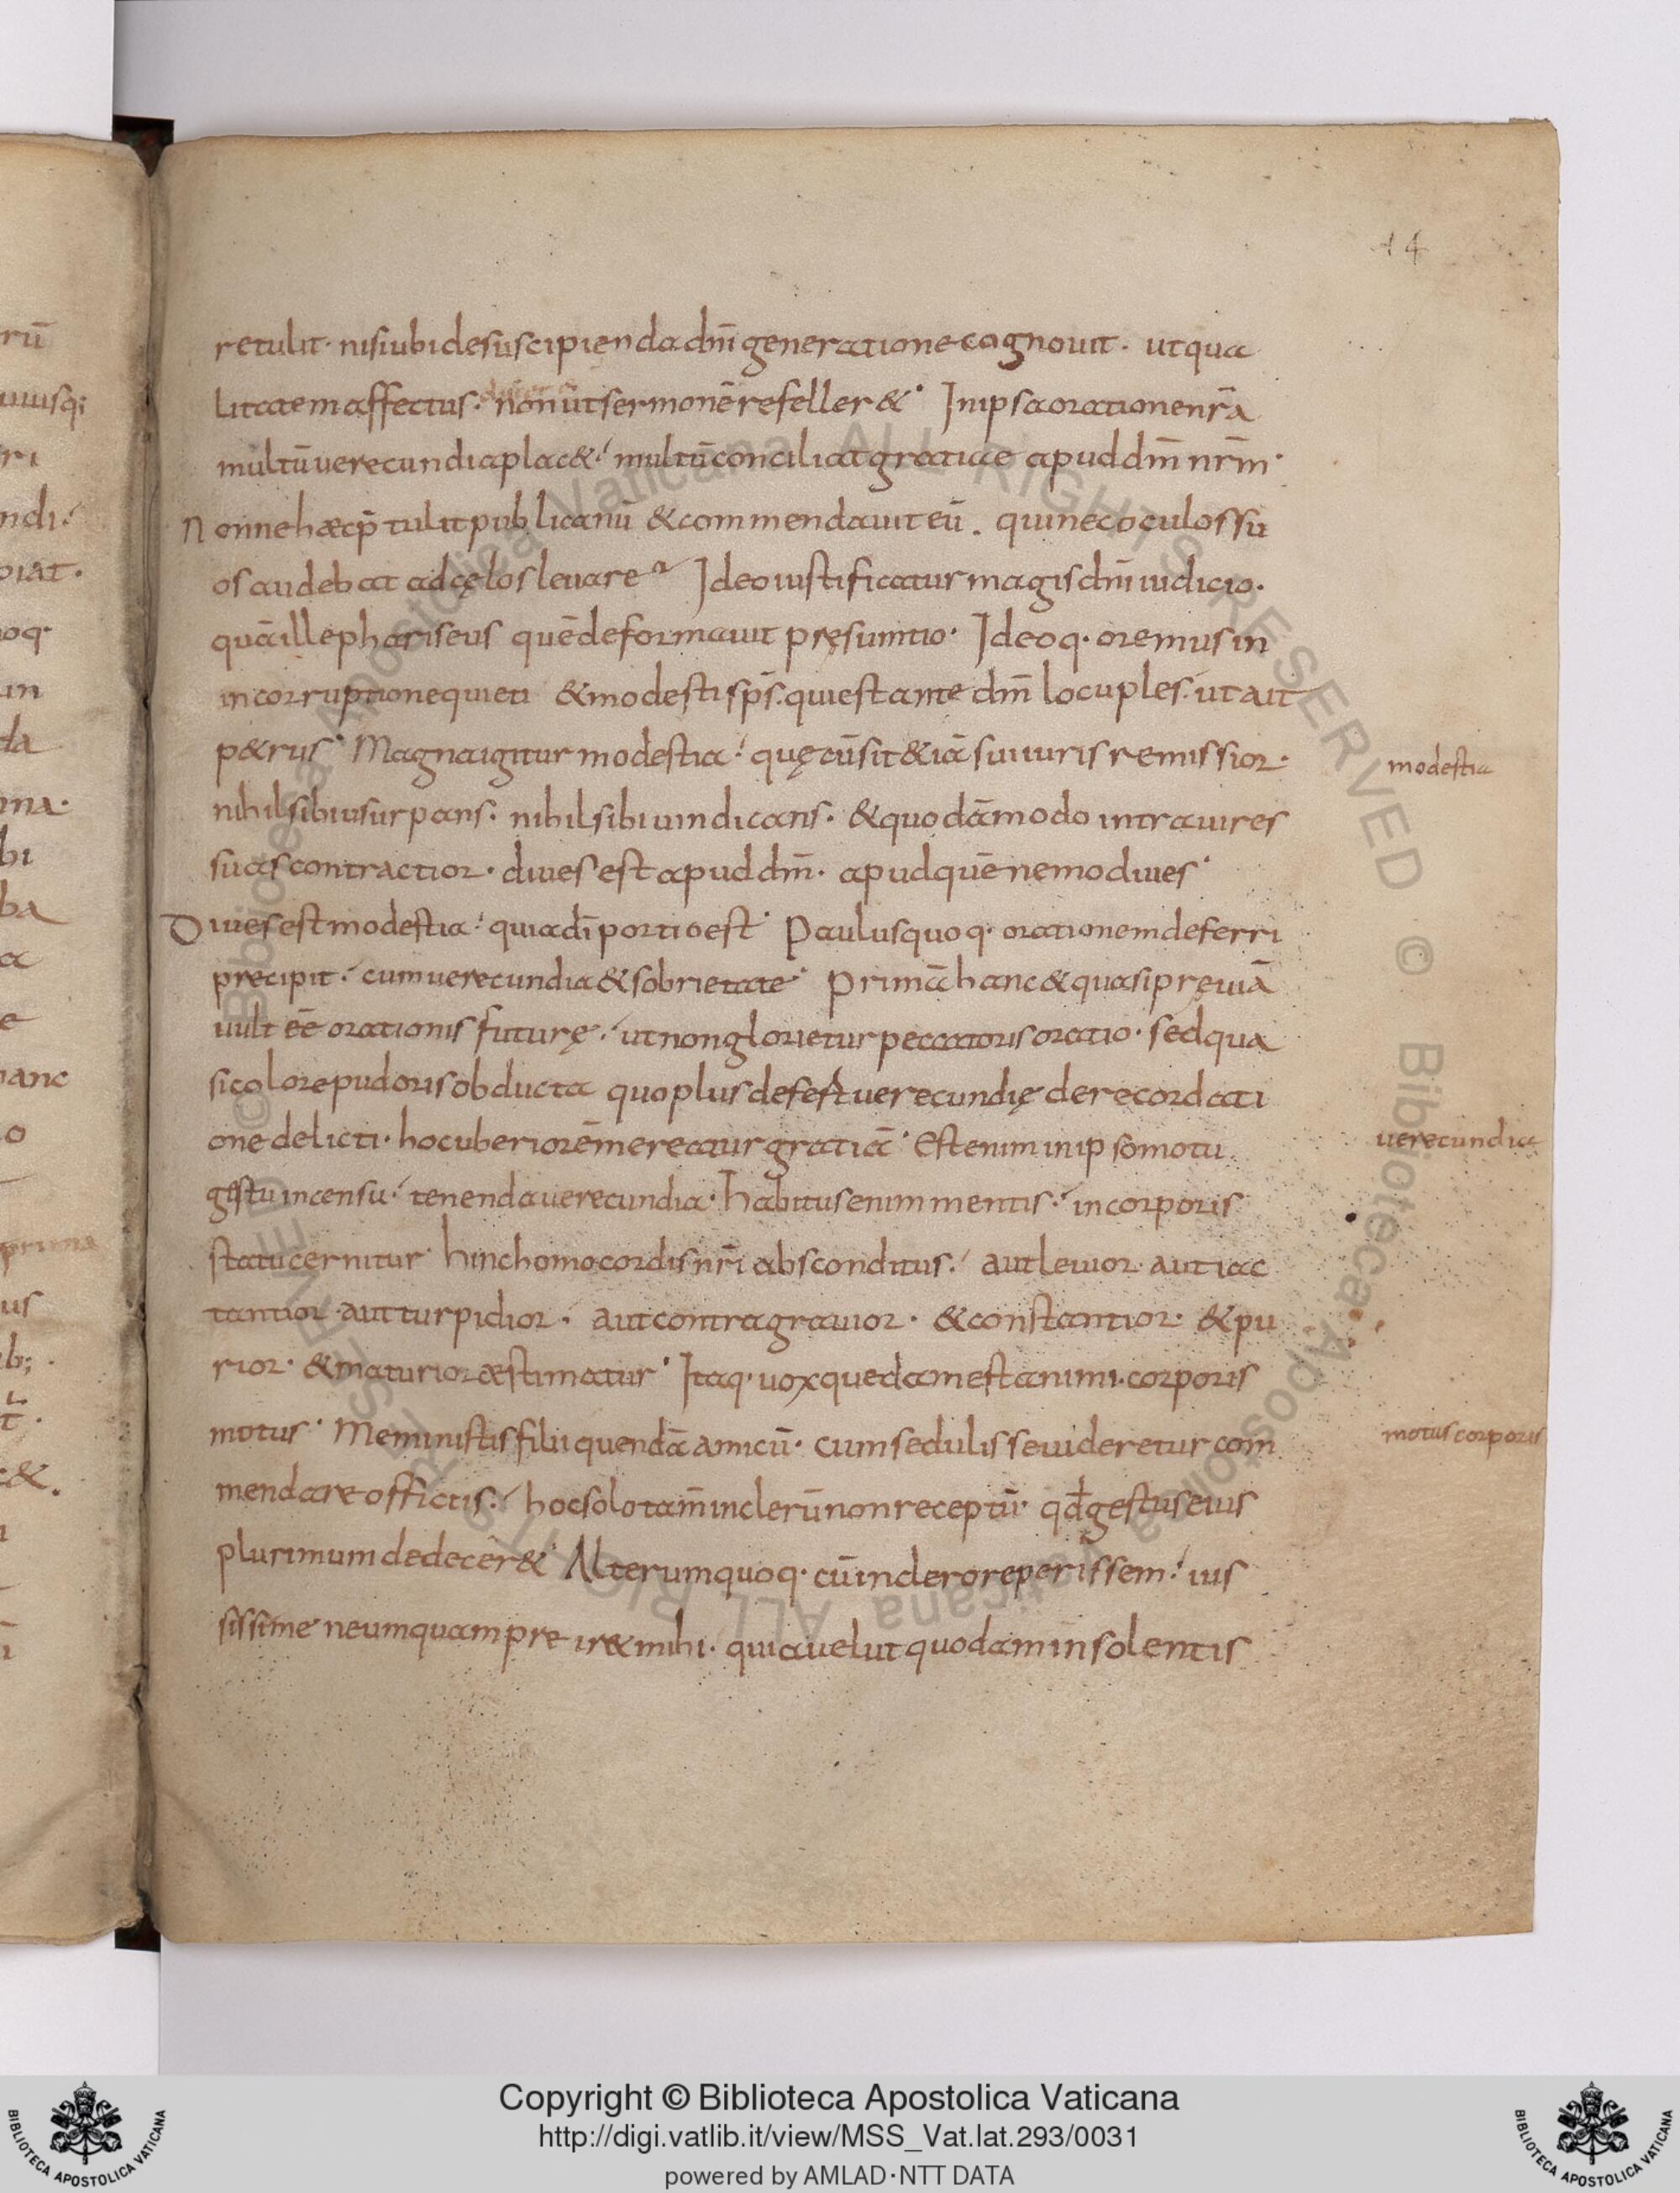 14
retulit· nisi ubi de suscipienda dn̄i generatione cognouit· ut qua
litatem affectus· non ut sermonē refeller& · In ipsa oratione nr̄a
multū uerecundia plac&· multū conciliat gratiae apud dm̄ nr̄m·
Nonne haec p̄tulit publicanū & commendauit eū. qui nec oculos su
os audebat ad cęlos leuare Ideo iustificatur magis dn̄i iudicio·
quā ille phariseus quē deformauit pręsumtio· Ideoq· oremus in
incorruptione quieti & modesti sp̄s· qui est ante dm̄ locuples· ut ait
p&rus· Magna igitur modestia· quę cū sit &iā sui iuris remissior·
nihil sibi usurpans· nihil sibi uindicans· & quodāmodo intra uires
suas contractior· diues est apud dm̄· apud quē nemo diues·
Diues est modestia· quia dī portio est· Paulus quoq· orationem deferri
precipit· cum uerecundia & sobrietate· Primā hanc & quasi pręuiā
uult eē orationis futurę· ut non glorietur peccatoris oratio· sed qua
si colore pudoris obducta quo plus defert uerecundię de recordati
one delicti· hoc uberiorē mereatur gratiā· Est enim in ipso motu
gestu incensu· tenenda uerecundia· habitus enim mentis· in corporis
statu cernitur· hinc homo cordis nr̄i absconditus· aut leuior· aut iac
tantior· aut turpidior· aut contra grauior· & constantior· & pu
rior· & maturior aestimatur· Itaq· uox quedam est animi· corporis
motus· Meministis filii quendā amicū· cum sedulis se uideretur com
mendare officiis· hoc solo tam̄ in clerū non receptū· qđ gestus eius
plurimum dedecer&· Alterum quoq· cū in clero reperissem· ius
sissime ne umquam preir& mihi· quia uelut quodam insolentis
modestia
uerecundia
motus corporis
Copyright © Biblioteca Apostolica Vaticana
http://digi.vatlib.it/view/MSS_Vat.lat.293/0031
powered by AMLAD·NTT DATA
BIBLIOTECA APOSTOLICA VATICANA
BIBLIOTECA APOSTOLICA VATICANA